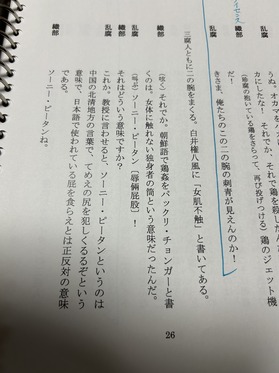 うぬ。オカマを
カにしたな！ それでか、それで鶏を殺したん
（珍腐の抱いている鶏をさらって、再び投げつける）鶏のジェット機
だ！
織部 きさま、俺たちのこの二の腕の刺青が見えんのか！
三腐人ともに二の腕をまくる。白井権八風に「女肌不触」と書いてある。
織部 （呟く）それでか。朝鮮語で鶏姦をバックリ・チョンガーと書
くのは、女体に触れない独身者の筒という意味だったんだ。
乱腐 （叫ぶ）ソーニー・ピータン〔辱倆屁股〕！
織部 それはどういう意味ですか？
乱腐 これか、教授に言わせると、ソーニー・ピータンというのは
中国の北清地方の言葉で、てめえの尻を犯しくるるぞという
意味で、日本語で使われている屁を食らえとは正反対の意味
である。
織部 ソーニー・ピータンね。
26